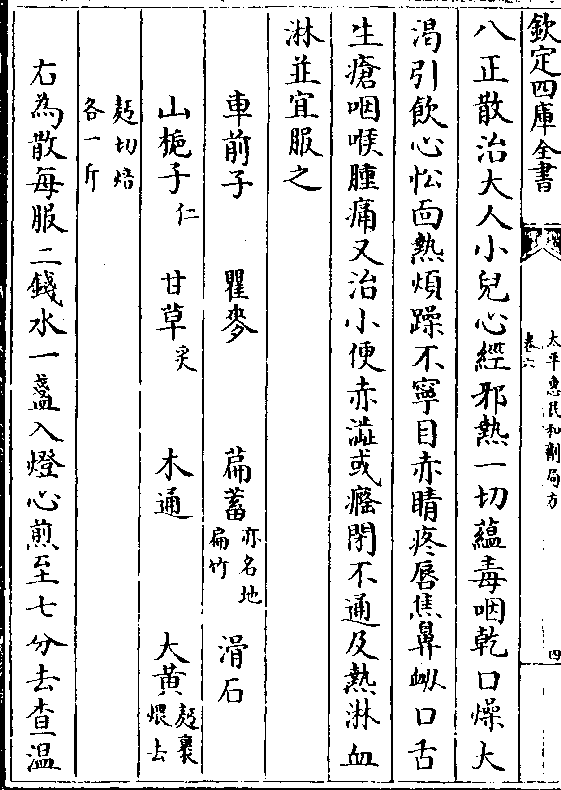 欽定四庫全書
太平惠民和劑局方
卷六
四
八正散治大人小兒心經邪熱一切蘊毒咽乾口燥大
渴引飲心忪面熱煩躁不寧目赤睛疼唇焦鼻衂口舌
生瘡咽喉腫痛又治小便赤澁或癃閉不通及熱淋血
淋並宜服之
車前子 瞿麥 萹蓄 亦名地扁竹 滑石
山梔子 仁 甘草 炙 木通 大黃 麪裹煨去
麪切焙各一斤
右為散每服二錢水一盞入燈心煎至七分去查温